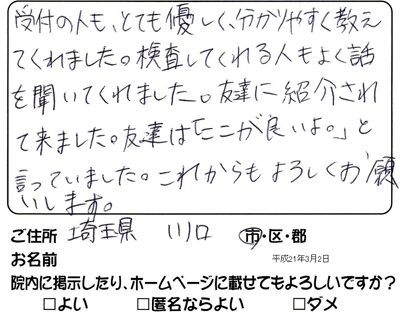 受付の人も、とても優しく、分かりやすく教え
てくれました。検査してくれる人もよく話
を聞いてくれました。友達に紹介され
て来ました。友達は「ここが良いよ。」と
言っていました。これからもよろしくお願
いします。
ご住所 埼玉県 川口 市・区・郡
お名前 平成21年3月2日
院内に掲示したり、ホームページに載せてもよろしいですか？
□よい □匿名ならよい □ダメ